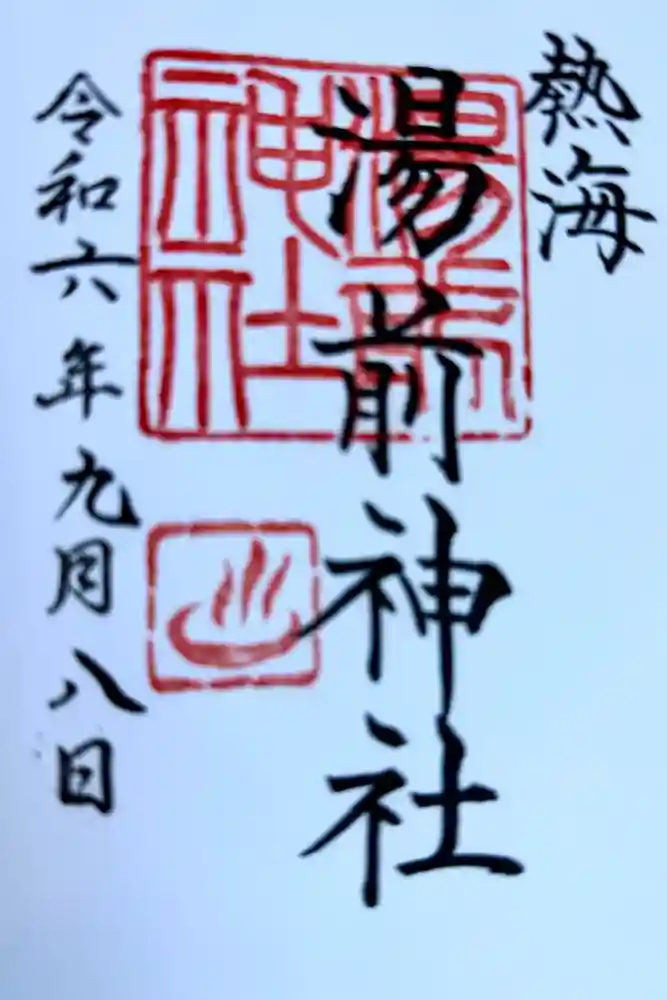 熱海
湯前神社
湯前
神社
令和六年九月八日